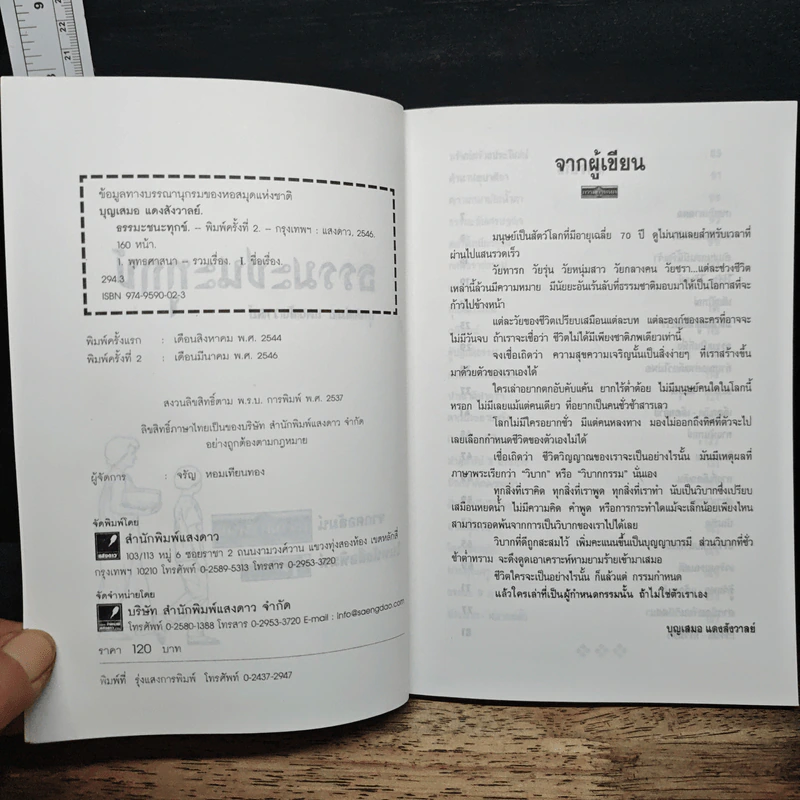 ข้อมูลทางบรรณานุกรมของหอสมุดแห่งชาติ
บุญเสมอ แดงสังวาลย์.
ธรรมะชนะทุกข์. – พิมพ์ครั้งที่ 2. – กรุงเทพฯ : แสงดาว, 2546.
160 หน้า.
1. พุทธศาสนา – รวมเรื่อง. I. ชื่อเรื่อง.
294.3
ISBN 974-9590-02-3
พิมพ์ครั้งแรก : เดือนสิงหาคม พ.ศ. 2544
พิมพ์ครั้งที่ 2 : เดือนมีนาคม พ.ศ. 2546
สงวนลิขสิทธิ์ตาม พ.ร.บ. การพิมพ์ พ.ศ. 2537
ลิขสิทธิ์ภาษาไทยเป็นของบริษัท สำนักพิมพ์แสงดาว จำกัด
อย่างถูกต้องตามกฎหมาย
ผู้จัดการ : จรัญ หอมเทียนทอง
จัดพิมพ์โดย
สำนักพิมพ์แสงดาว
103/113 หมู่ 6 ซอยราชา 2 ถนนงามวงศ์วาน แขวงทุ่งสองห้อง เขตหลักสี่
กรุงเทพฯ 10210 โทรศัพท์ 0-2589-5313 โทรสาร 0-2953-3720
จัดจำหน่ายโดย
บริษัท สำนักพิมพ์แสงดาว จำกัด
โทรศัพท์ 0-2580-1388 โทรสาร 0-2953-3720 E-mail : info@saengdao.com
ราคา 120 บาท
พิมพ์ที่ รุ่งแสงการพิมพ์ โทรศัพท์ 0-2437-2947
จากผู้เขียน
มนุษย์เป็นสัตว์โลกที่มีอายุเฉลี่ย 70 ปี ดูไม่นานเลยสำหรับเวลาที่
ผ่านไปแสนรวดเร็ว
วัยทารก วัยรุ่น วัยหนุ่มสาว วัยกลางคน วัยชรา...แต่ละช่วงชีวิต
เหล่านี้ล้วนมีความหมาย มีนัยยะอันเร้นลับที่ธรรมชาติมอบมาให้เป็นโอกาสที่จะ
ก้าวไปข้างหน้า
แต่ละวัยของชีวิตเปรียบเสมือนแต่ละบท แต่ละองก์ของละครที่อาจจะ
ไม่มีวันจบ ถ้าเราจะเชื่อว่า ชีวิตไม่ได้มีเพียงชาติภพเดียวเท่านี้
จงเชื่อเถิดว่า ความสุขความเจริญนั้นเป็นสิ่งง่ายๆ ที่เราสร้างขึ้น
มาด้วยตัวของเราเองได้
ใครเล่าอยากตกอับคับแค้น ยากไร้ต่ำต้อย ไม่มีมนุษย์คนใดในโลกนี้
หรอก ไม่มีเลยแม้แต่คนเดียว ที่อยากเป็นคนชั่วช้าสารเลว
โลกไม่มีใครอยากชั่ว มีแต่คนหลงทาง มองไม่ออกถึงทิศที่ตัวจะไป
เลยเลือกกำหนดชีวิตของตัวเองไม่ได้
เชื่อเถิดว่า ชีวิตวิญญาณของเราจะเป็นอย่างไรนั้น มันมีเหตุผลที่
ภาษาพระเรียกว่า "วิบาก" หรือ "วิบากกรรม" นั่นเอง
ทุกสิ่งที่เราคิด ทุกสิ่งที่เราพูด ทุกสิ่งที่เราทำ นับเป็นวิบากซึ่งเปรียบ
เสมือนหยดน้ำ ไม่มีความคิด คำพูด หรือการกระทำใดแม้จะเล็กน้อยเพียงไหน
สามารถรอดพ้นจากการเป็นวิบากของเราไปได้เลย
วิบากที่ดีถูกสะสมไว้ เพิ่มคะแนนขึ้นเป็นบุญญาบารมี ส่วนวิบากที่ชั่ว
ช้าต่ำทราม จะดึงดูดเอาเคราะห์หามยามร้ายเข้ามาเสมอ
ชีวิตใครจะเป็นอย่างไรนั้น ก็แล้วแต่ กรรมกำหนด
แล้วใครเล่าที่เป็นผู้กำหนดกรรมนั้น ถ้าไม่ใช่ตัวเราเอง
บุญเสมอ แดงสังวาลย์